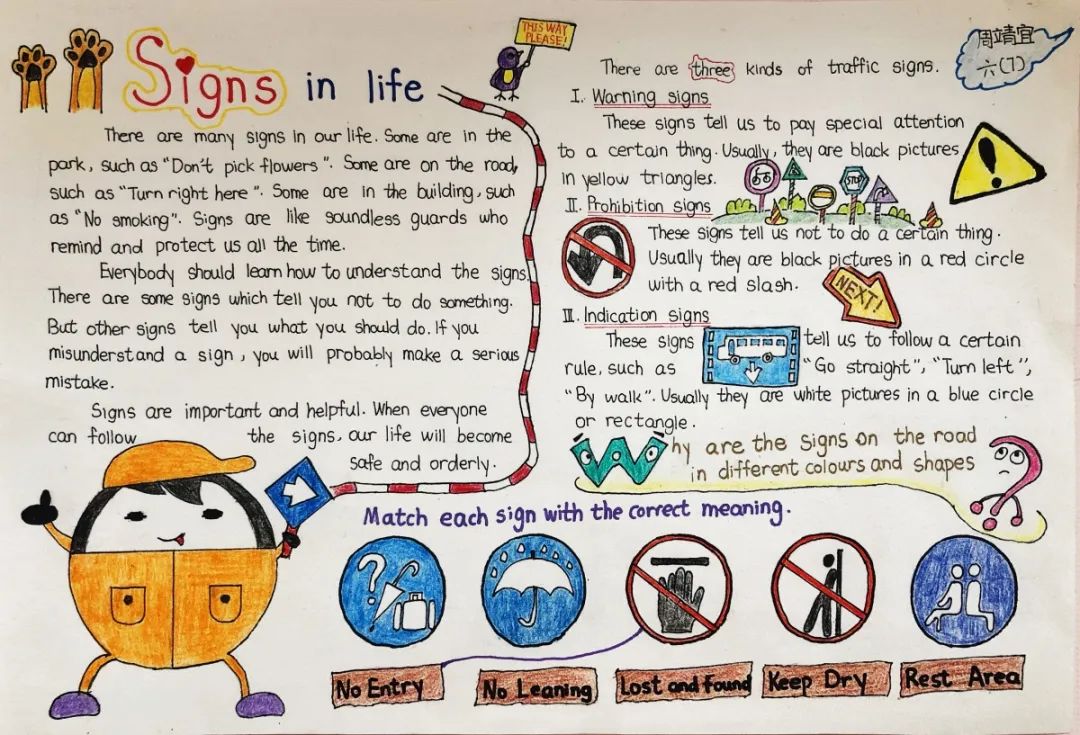 Signs in life
THIS WAY
PLEASE!
There are many signs in our life. Some are in the
park, such as "Don't pick flowers". Some are on the road,
such as "Turn right here". Some are in the building, such
as "No smoking". Signs are like soundless guards who
remind and protect us all the time.
Everybody should learn how to understand the signs.
There are some signs which tell you not to do something.
But other signs tell you what you should do. If you
misunderstand a sign, you will probably make a serious
mistake.
Signs are important and helpful. When everyone
can follow the signs, our life will become
safe and orderly.
周靖宜
六(7)
There are three kinds of traffic signs.
I. Warning signs
These signs tell us to pay special attention
to a certain thing. Usually, they are black pictures
in yellow triangles.
STOP
II. Prohibition signs
These signs tell us not to do a certain thing.
Usually they are black pictures in a red circle
with a red slash.
NEXT!
III. Indication signs
These signs tell us to follow a certain
rule, such as "Go straight", "Turn left",
"By walk". Usually they are white pictures in a blue circle
or rectangle.
Why are the signs on the road
in different colours and shapes
Match each sign with the correct meaning.
No Entry
No Leaning
Lost and found
Keep Dry
Rest Area